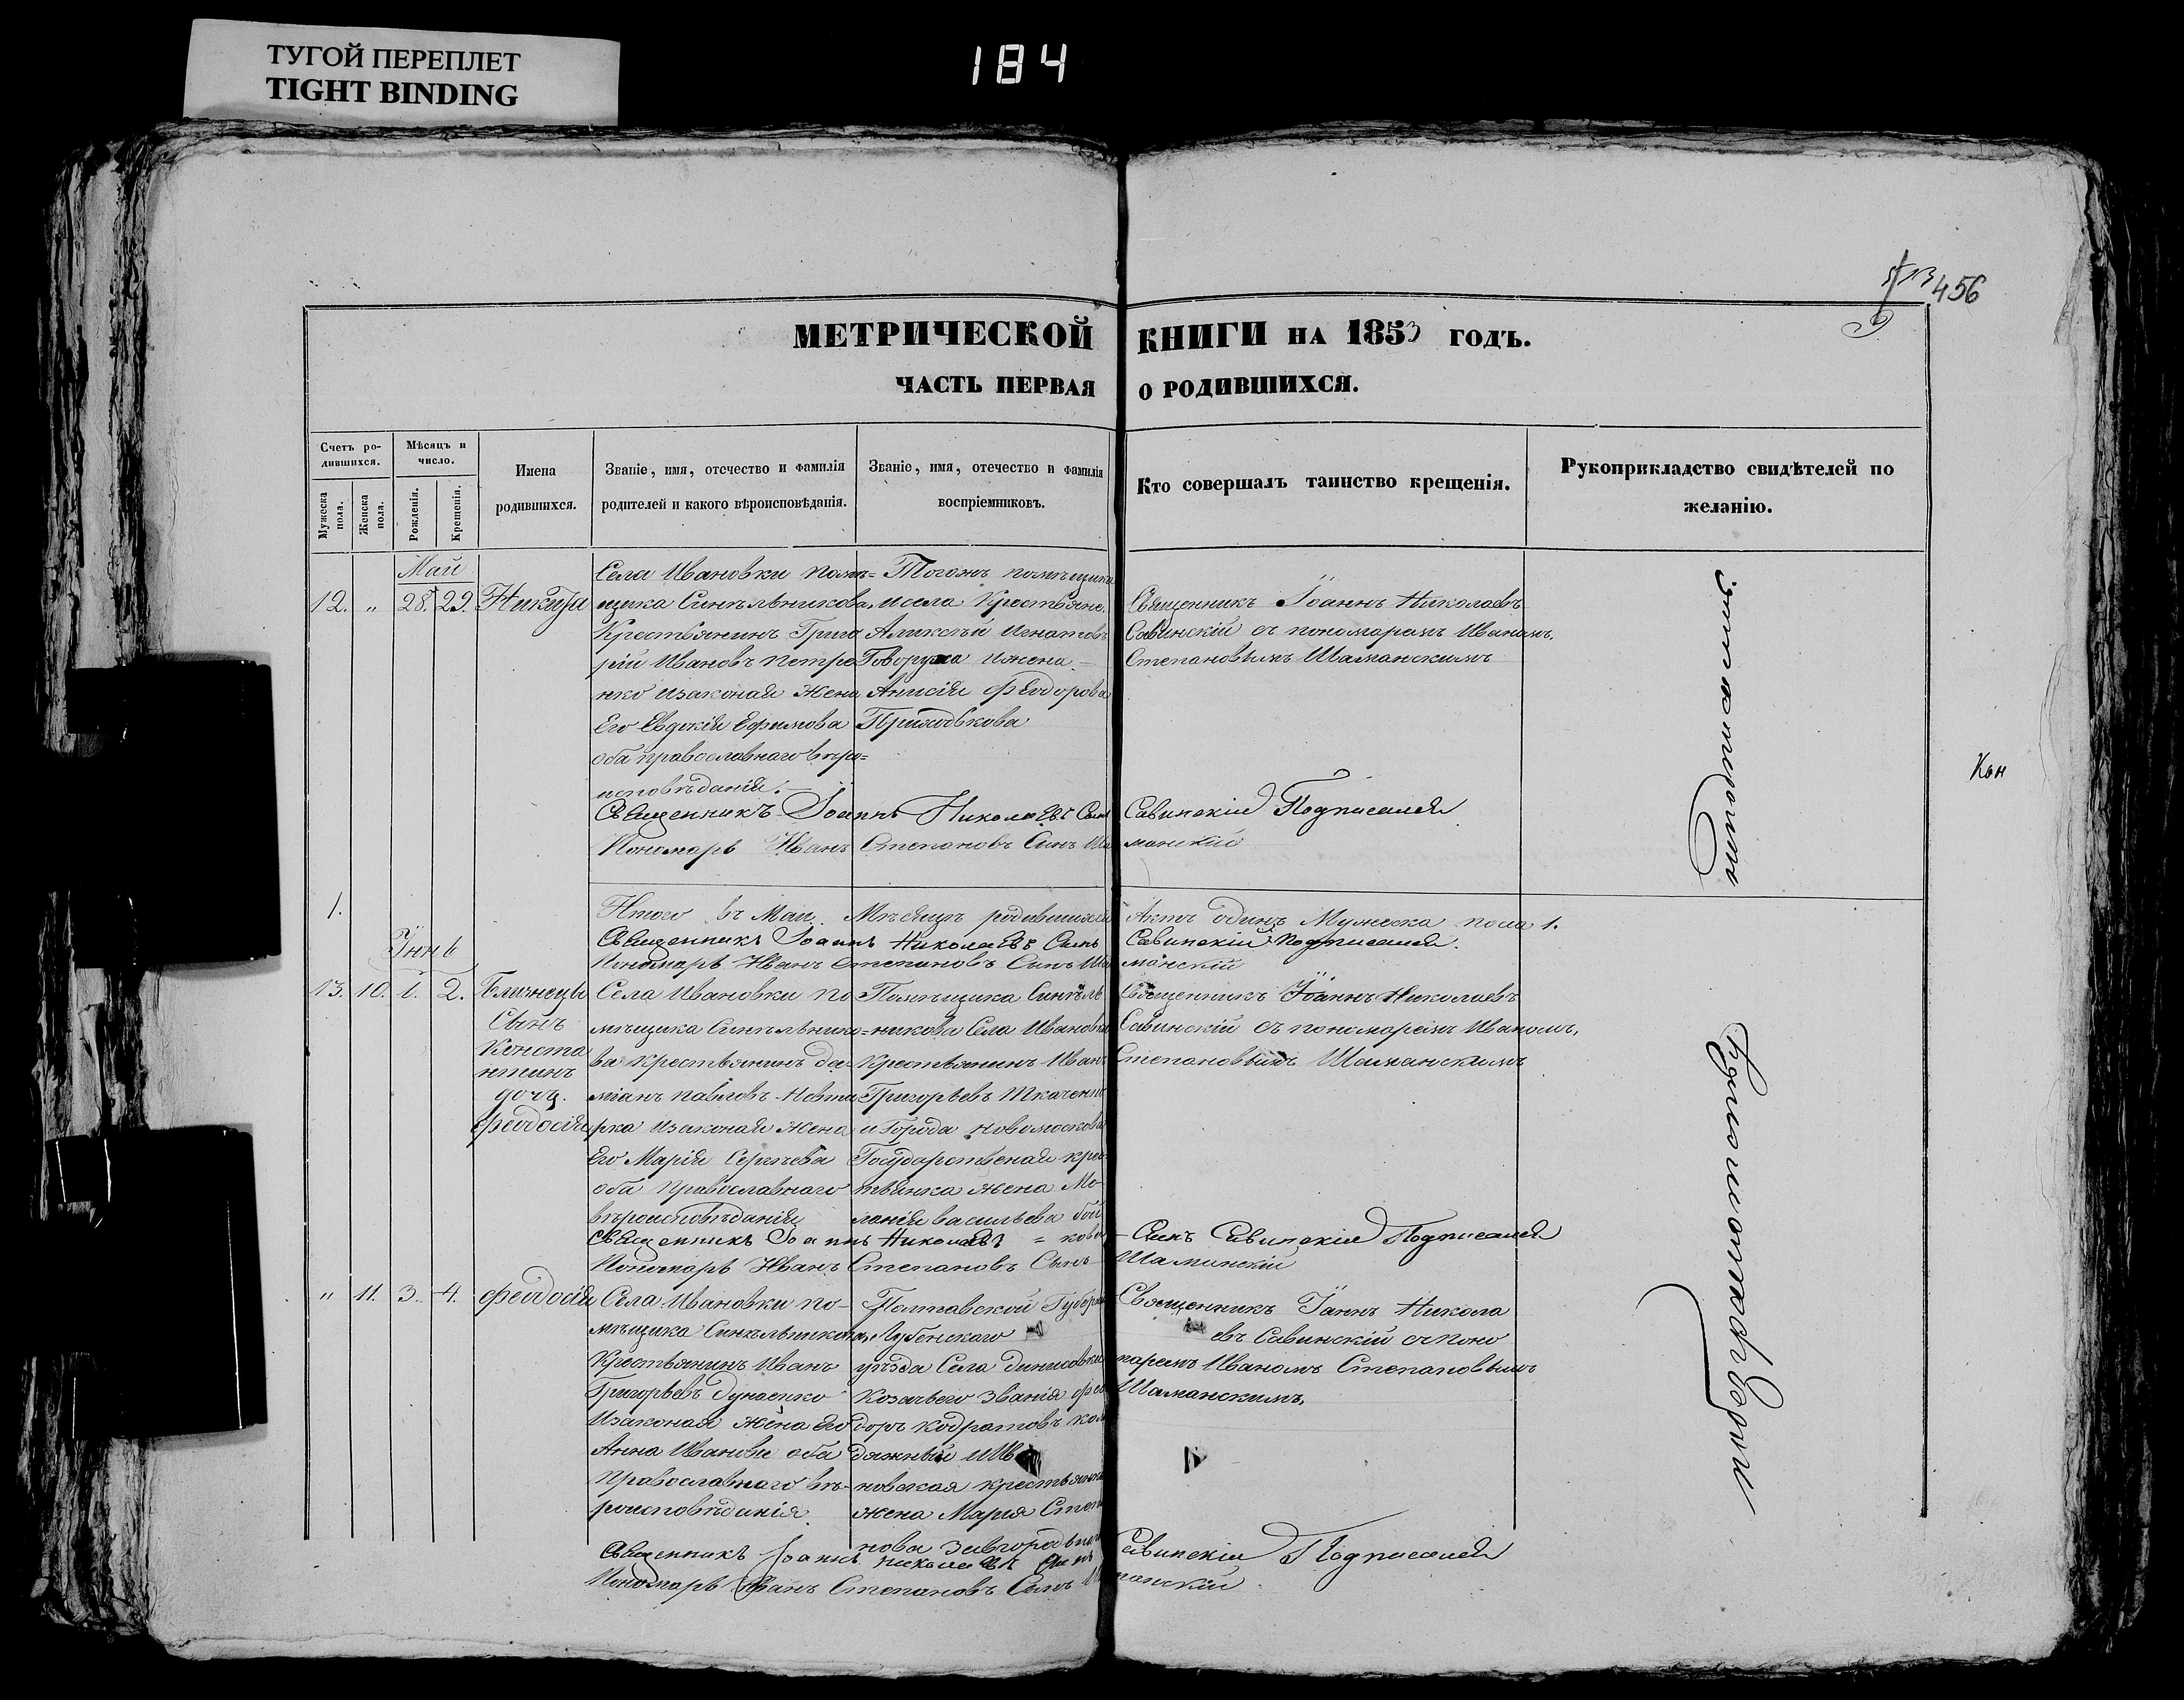 ТУГОЙ ПЕРЕПЛЕТ
TIGHT BINDING
184
456
МЕТРИЧЕСКОЙ КНИГИ НА 1853 ГОДЪ.
ЧАСТЬ ПЕРВАЯ О РОДИВШИХСЯ.
Счетъ ро-
дившихся.
Мужеска пола.
Женска пола.
Мѣсяцъ и
число.
Рожденія.
Крещенія.
Имена
родившихся.
Званіе, имя, отечество и фамилія
родителей и какого вѣроисповѣданія.
Званіе, имя, отечество и фамилія
воспріемниковъ.
Кто совершалъ таинство крещенія.
Рукоприкладство свидѣтелей по
желанію.
Май
12. „ 28. 29. Никита
Села Ивановки помѣ=
щика Синѣльникова,
Крестьянинъ Григо
рій Ивановъ Петре
нко изаконая жена
Его Евдокія Ефимова
оба православнаго вѣро=
исповѣданія.
Тогожъ помѣщика
исела Крестьяне.
Аликсѣй Игнатовъ
Говоруха ижена
Анисія Феодорова
Приходькова
Священникъ Іоаннъ Николаевъ
Савинскій съ пономаремъ Иваномъ.
Степановымъ Шаманскимъ
Священникъ Іоаннъ Николаевъ Сынъ Савинскій Подписался
Пономарь Иванъ Степановъ Сынъ Шаманскій
1.
Итого въ Маи Мѣсяцѣ родившихся Актъ одинъ Мужеска пола 1.
Священникъ Іоаннъ Николаевъ Сынъ Савинскій подписался.
Пономарь Иванъ Степановъ Сынъ Шаманскій
Іюнь
13. 10. 1. 2. Близнецы
Сынъ
Конста
нтинъ
дочь.
Феодосія
Села Ивановки по
мѣщика Синѣльнико=
ва крестьянинъ Да
міанъ Павловъ
рка изаконая жена
Его Марія Сергѣева
оба православнаго
вѣроисповѣданія
Помѣщика Синѣль
никова Села Ивановки
Крестьянинъ Иванъ
Григорьевъ Ткаченко
и Города Новомосковска
Государственая крес
тьянка жена Ме
ланія Васильева Бой
=кова
Священникъ Іоаннъ Николаевъ
Савинскій съ пономаремъ Иваномъ,
Степановымъ Шаманскимъ
Священникъ Іоаннъ Николаевъ Сынъ Савинскій Подписался
Пономарь Иванъ Степановъ Сынъ Шаманскій
„ 11. 3. 4. Феодосія
Села Ивановки по-
мѣщика Синѣльникова,
Крестьянинъ Иванъ
Григорьевъ Дунаенко
Изаконая жена Его
Анна Иванова оба
Православнаго вѣ-
роисповѣданія.
Полтавской Губерніи
Лубенскаго
уѣзда Села Динисовки
Козачьего званія Фео
доръ Кодратовъ Кол
дяжный
новская крестьянка
жена Мария Степа
нова
Священникъ Іаннъ Никола
евъ Савинскій съ поно
маремъ Иваномъ Степановымъ
Шаманскимъ,
Священникъ Іоаннъ Николаевъ Сынъ Савинскій Подписался
Пономарь Иванъ Степановъ Сынъ Шаманскій